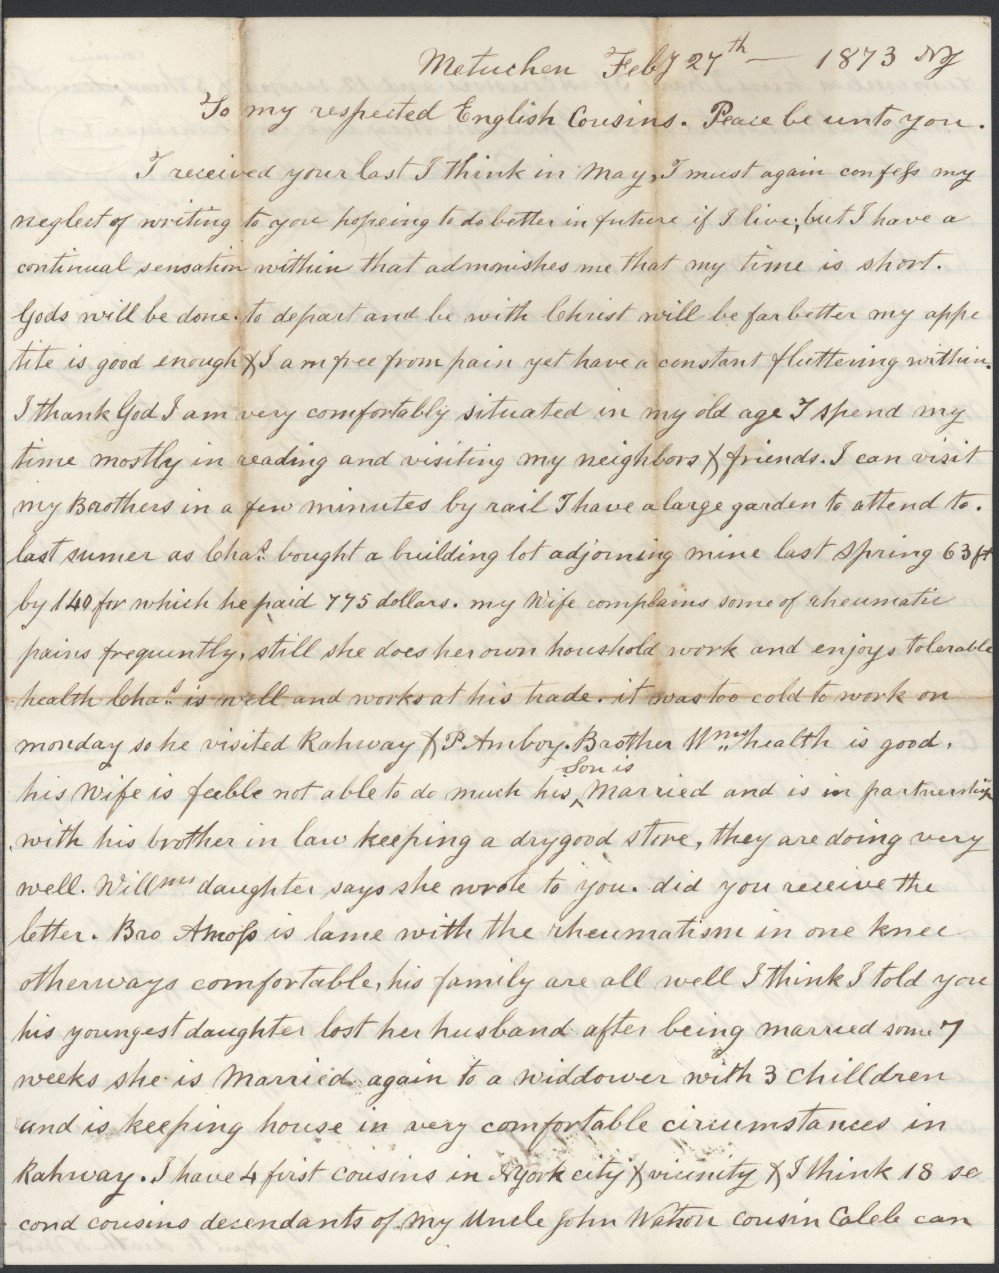 Metuchen Feby 27th — 1873 NJ
To my respected English Cousins. Peace be unto you.
I received your last I think in May, I must again confess my
neglect of writing to you hopeing to do better in future if I live, but I have a
continual sensation within that admonishes me that my time is short.
Gods will be done. to depart and be with Christ will be far better my appe
tite is good enough & I am free from pain yet have a constant fluttering within.
I thank God I am very comfortably situated in my old age I spend my
time mostly in reading and visiting my neighbors & friends. I can visit
my Brothers in a few minutes by rail I have a large garden to attend to.
last sumer as Chas. bought a building lot adjoining mine last Spring 63 ft
by 140 for which he paid 775 dollars. my Wife complains some of rheumatic
pains frequently, still she does her own houshold work and enjoys tolerable
health Chas. is well and works at his trade. it was too cold to work on
monday so he visited Rahway & P. Amboy. Brother Wms health is good,
his Wife is feeble not able to do much his Son is Married and is in partnership
with his brother in law keeping a drygood store, they are doing very
well. Willms daughter says she wrote to you. did you receive the
letter. Bro Amoss is lame with the rheumatism in one knee
otherways comfortable, his family are all well I think I told you
his youngest daughter lost her husband after being married some 7
weeks she is Married again to a widdower with 3 chilldren
and is keeping house in very comfortable circumstances in
Rahway. I have 4 first cousins in NYork city & vicinity & I think 18 se
cond cousins decendants of my Uncle John Watson cousin Caleb can